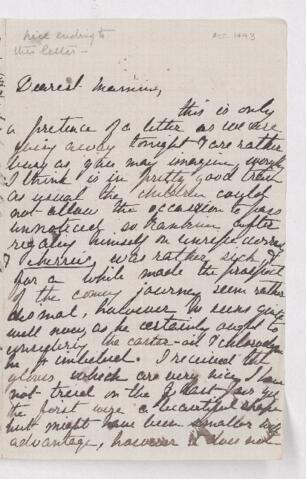 nice ending to
this letter -
Dearest Mammie,
this is only
a pretence of a letter as we are
going away tonight & are rather
busy as you may imagine,
I think is in pretty good
as usual the children could
not allow the occasion to pass
unnoticed, so after
regaling himself on unripe
& cherries, was rather sick &
for a while made the prospect
of the coming journey seem rather
dismal, however he seems quite
well now, as he certainly ought to
considering the castor-oil & chlorodyne
he imbibed. I received the
gloves which are very nice I have
not tried on the last pair yet
the first were a beautiful shape
but might have been smaller with
advantage, however it does not